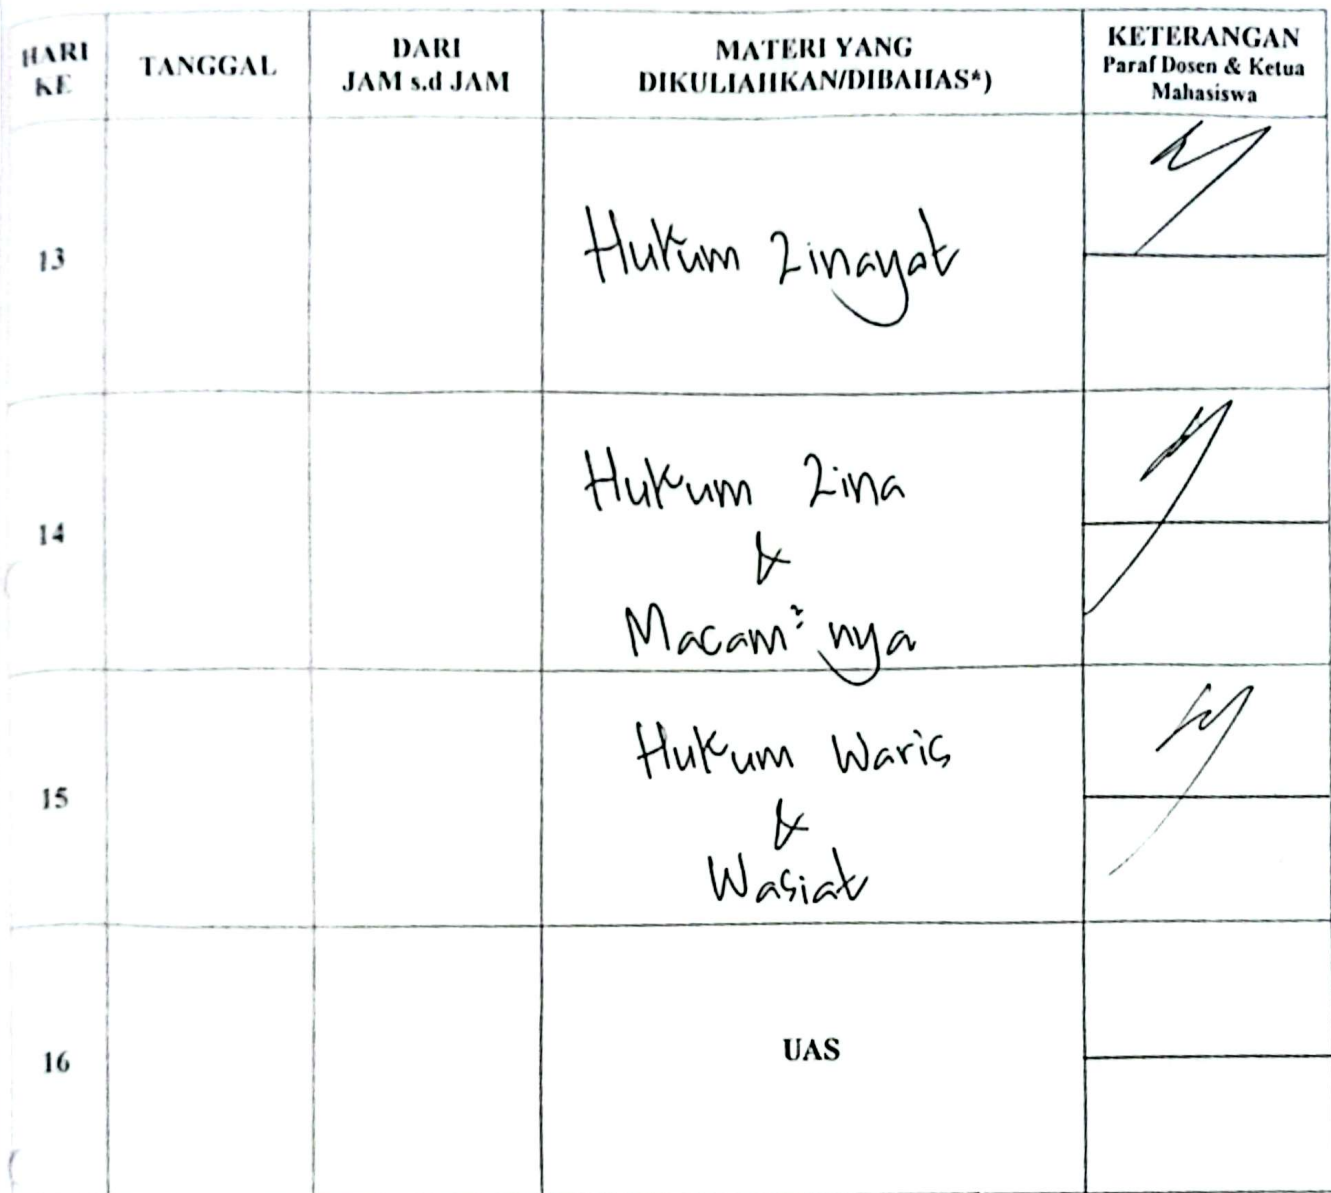 HARI KE
TANGGAL
DARI
JAM s.d JAM
MATERI YANG
DIKULIAHKAN/DIBAHAS*)
KETERANGAN
Paraf Dosen & Ketua
Mahasiswa
13
Hukum Zinayat
14
Hukum Zina
&
Macam² nya
15
Hukum Waris
&
Wasiat
16
UAS